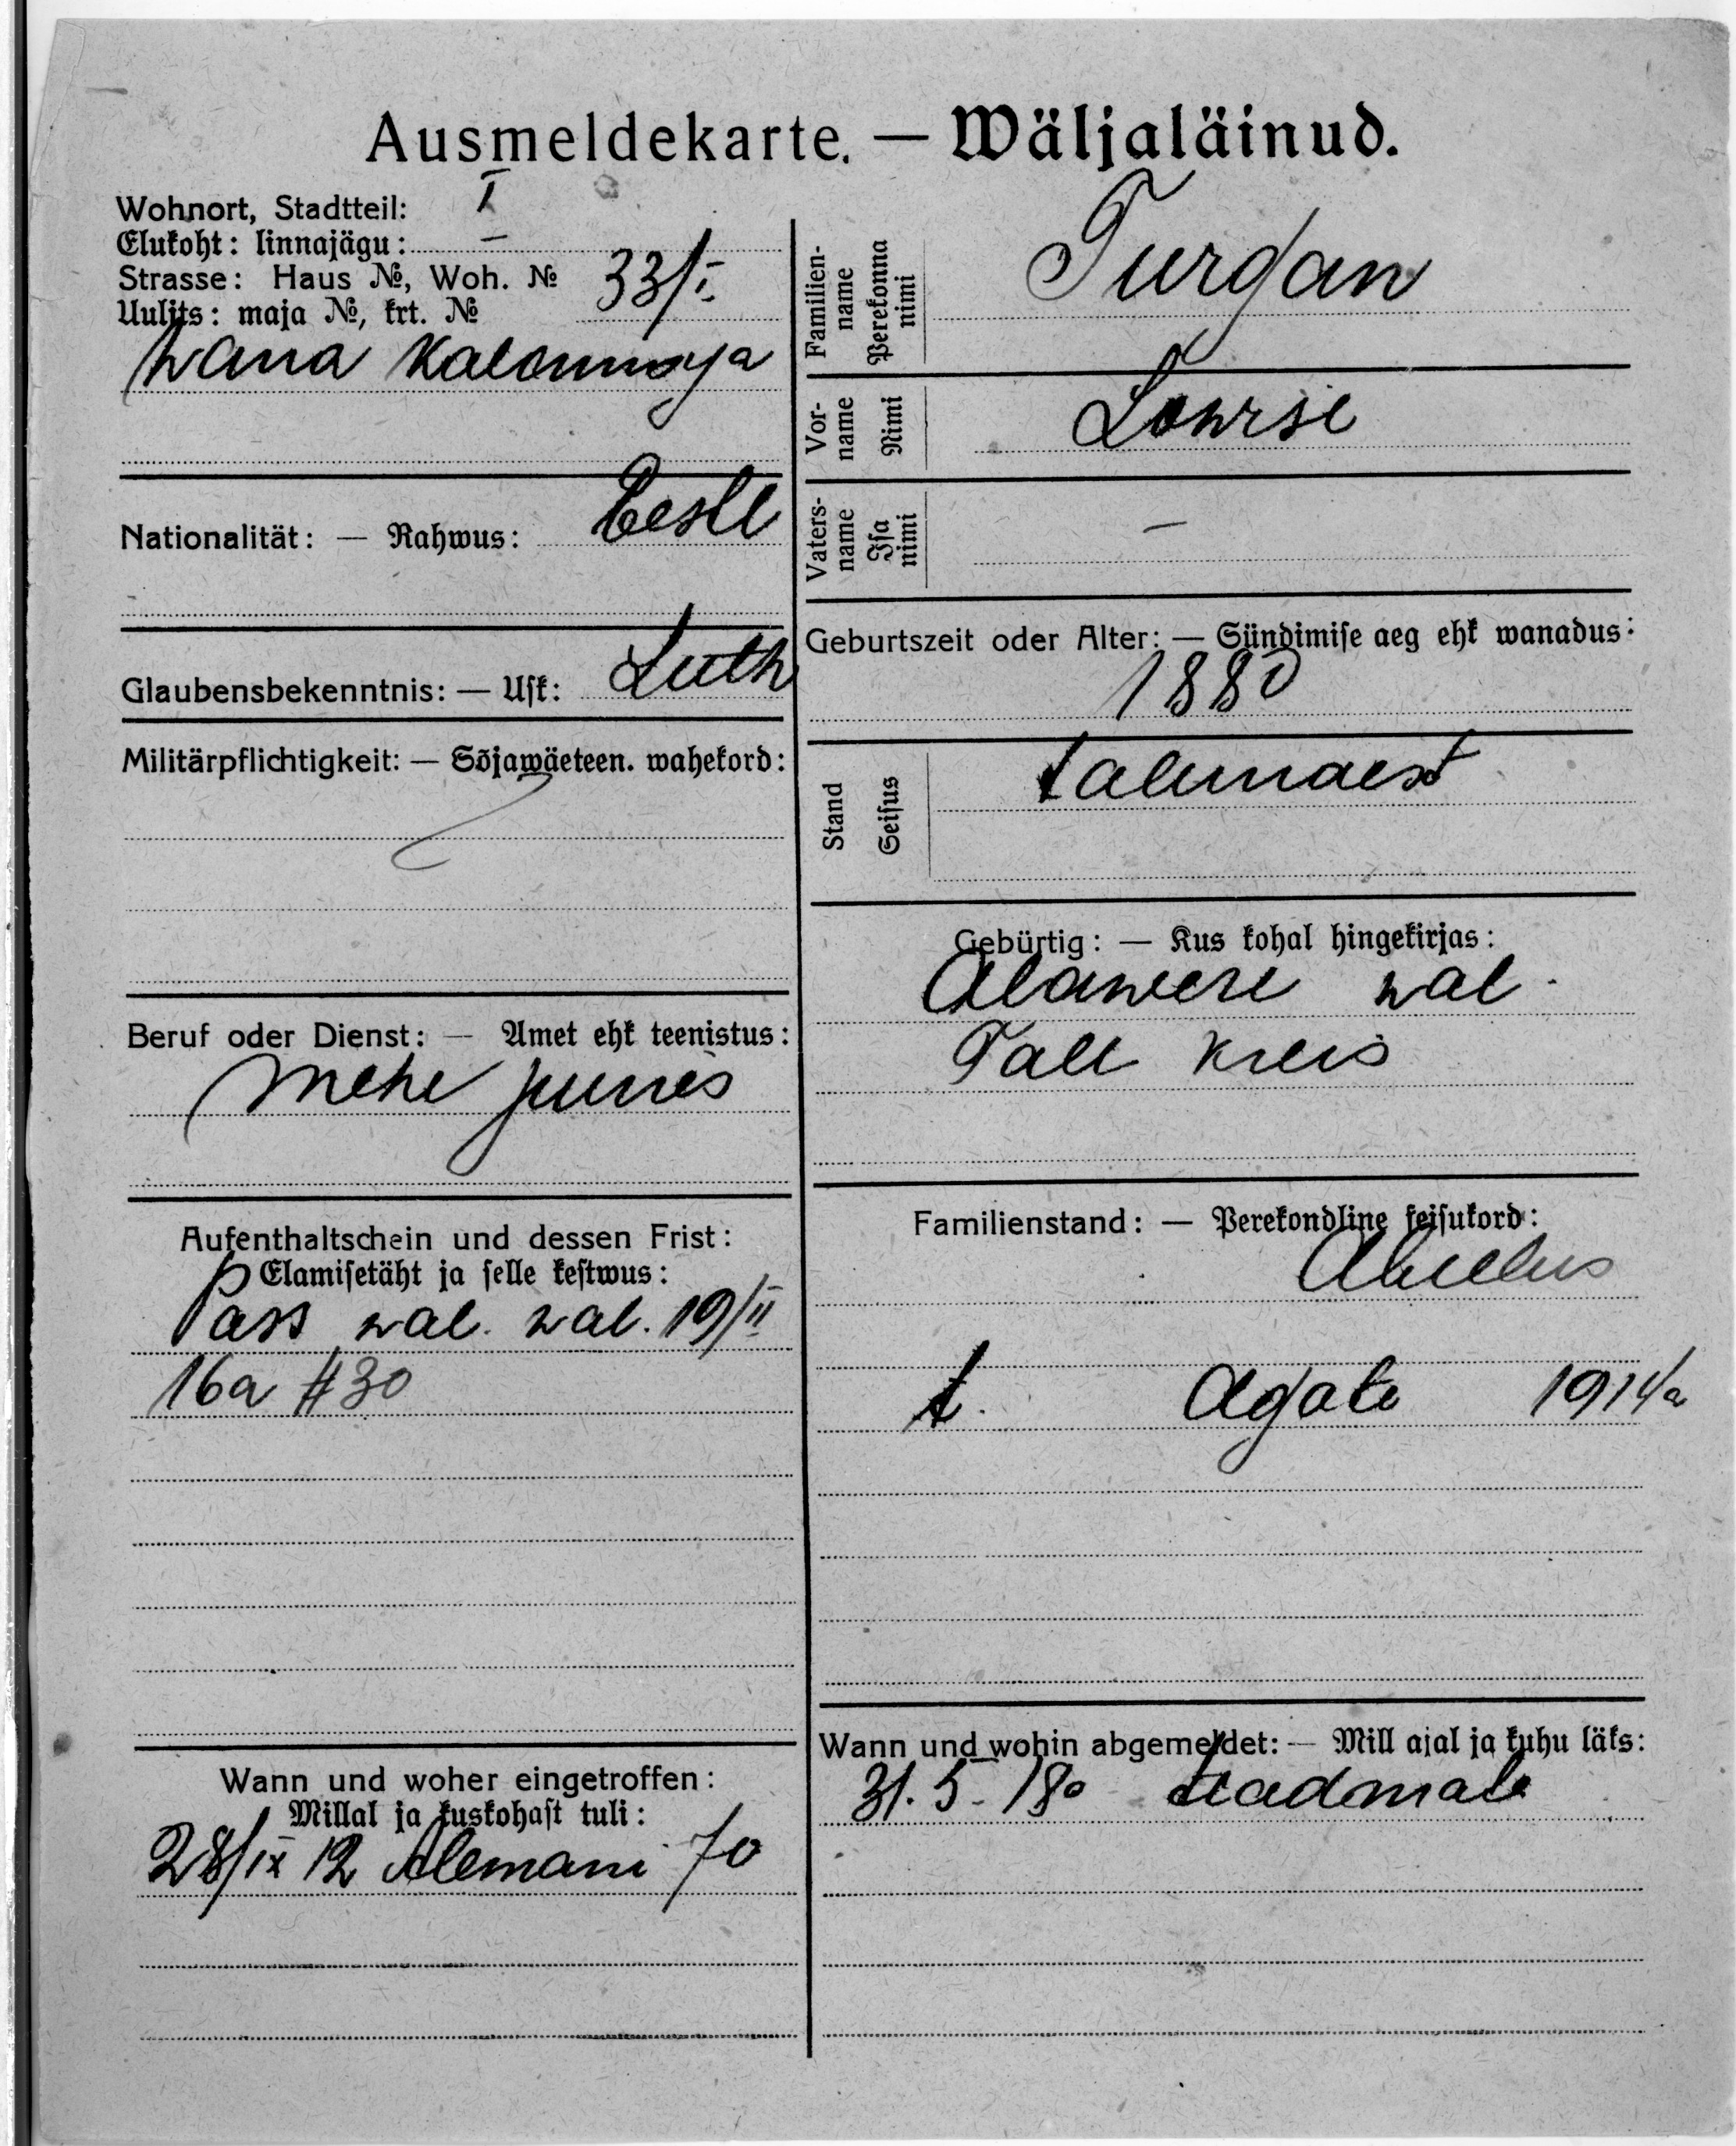 Ausmeldekarte. — Wäljaläinud.
Wohnort, Stadtteil: I
Elukoht: linnajägu: —
Strasse: Haus №, Woh. № 33/I.
Uulits: maja №, krt. №
Wana Kalamaja
Nationalität: — Rahwus: Eestl
Glaubensbekenntnis: — Usk: Luth
Militärpflichtigkeit: — Sõjawäeteen. wahekord:
Beruf oder Dienst: — Amet ehk teenistus:
Mehe juures
Aufenthaltschein und dessen Frist:
Elamisetäht ja selle kestwus:
Pass wal. wal. 19/II
16a #30
Wann und woher eingetroffen:
Millal ja kuskohast tuli:
28/IX 12 Alemani 70
Familien-
name
Perekonna
nimi
Turgan
Vor-
name
Nimi
Lowise
Vaters-
name
Isa
nimi
—
Geburtszeit oder Alter: — Sündimise aeg ehk wanadus:
1880
Stand
Seisus
talunaest
Gebürtig: — Kus kohal hingekirjas:
Alawere wal.
Tall Kreis
Familienstand: — Perekondline seisukord:
Abielus
t. Agate 1914a
Wann und wohin abgemeldet: — Mill ajal ja kuhu läks:
31. 5. 18o teadmata